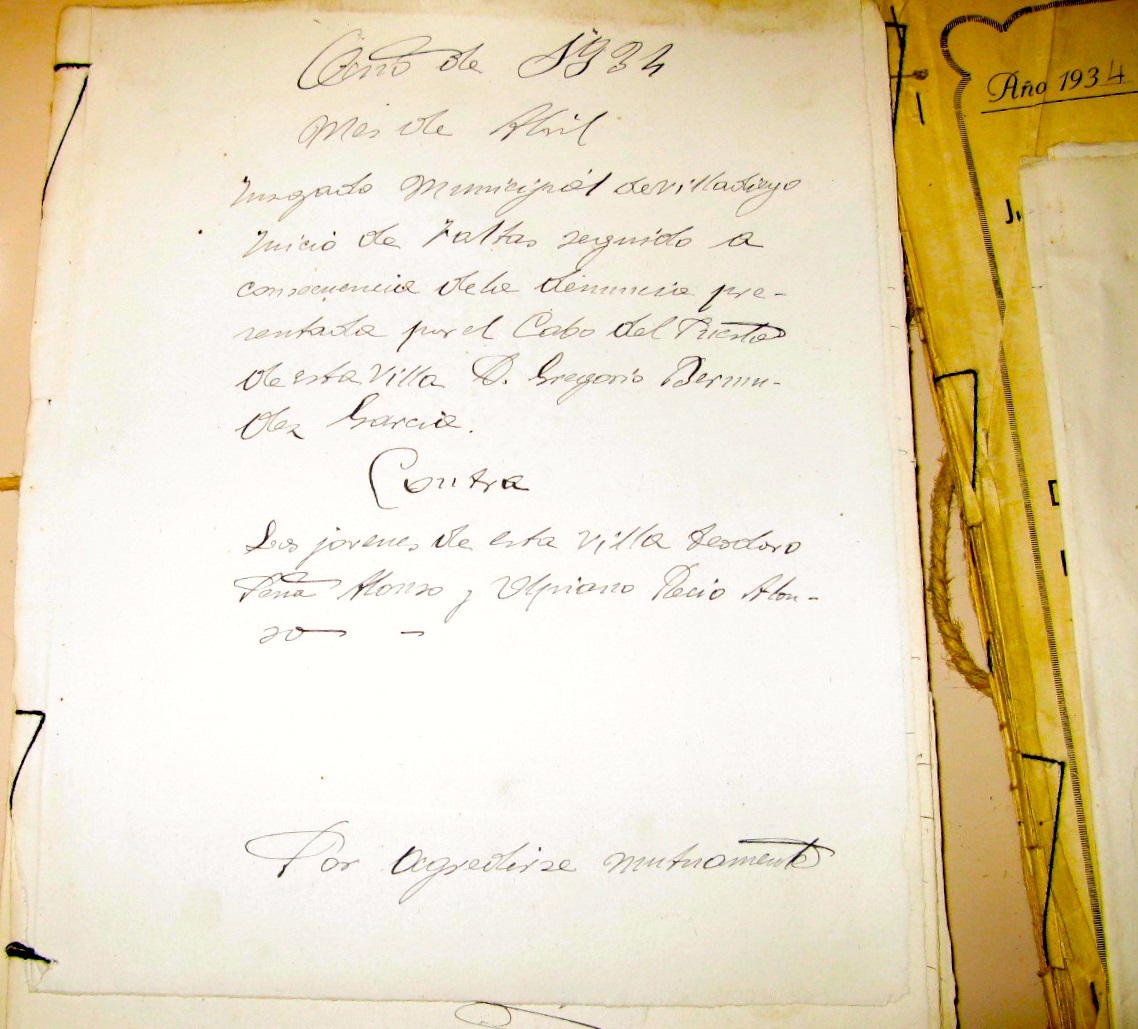 Año de 1934
Mes de Abril
Juzgado Municipal de Villadiego
Juicio de Faltas seguido a
consecuencia de la denuncia pre-
sentada por el Cabo del Puesto
de esta Villa D. Gregorio Bermu-
dez Garcia.
Contra
Los jovenes de esta Villa Teodoro
Peña Alonso y Ulpiano Recio Alon-
so
Por agredirse mutuamente
Año 1934